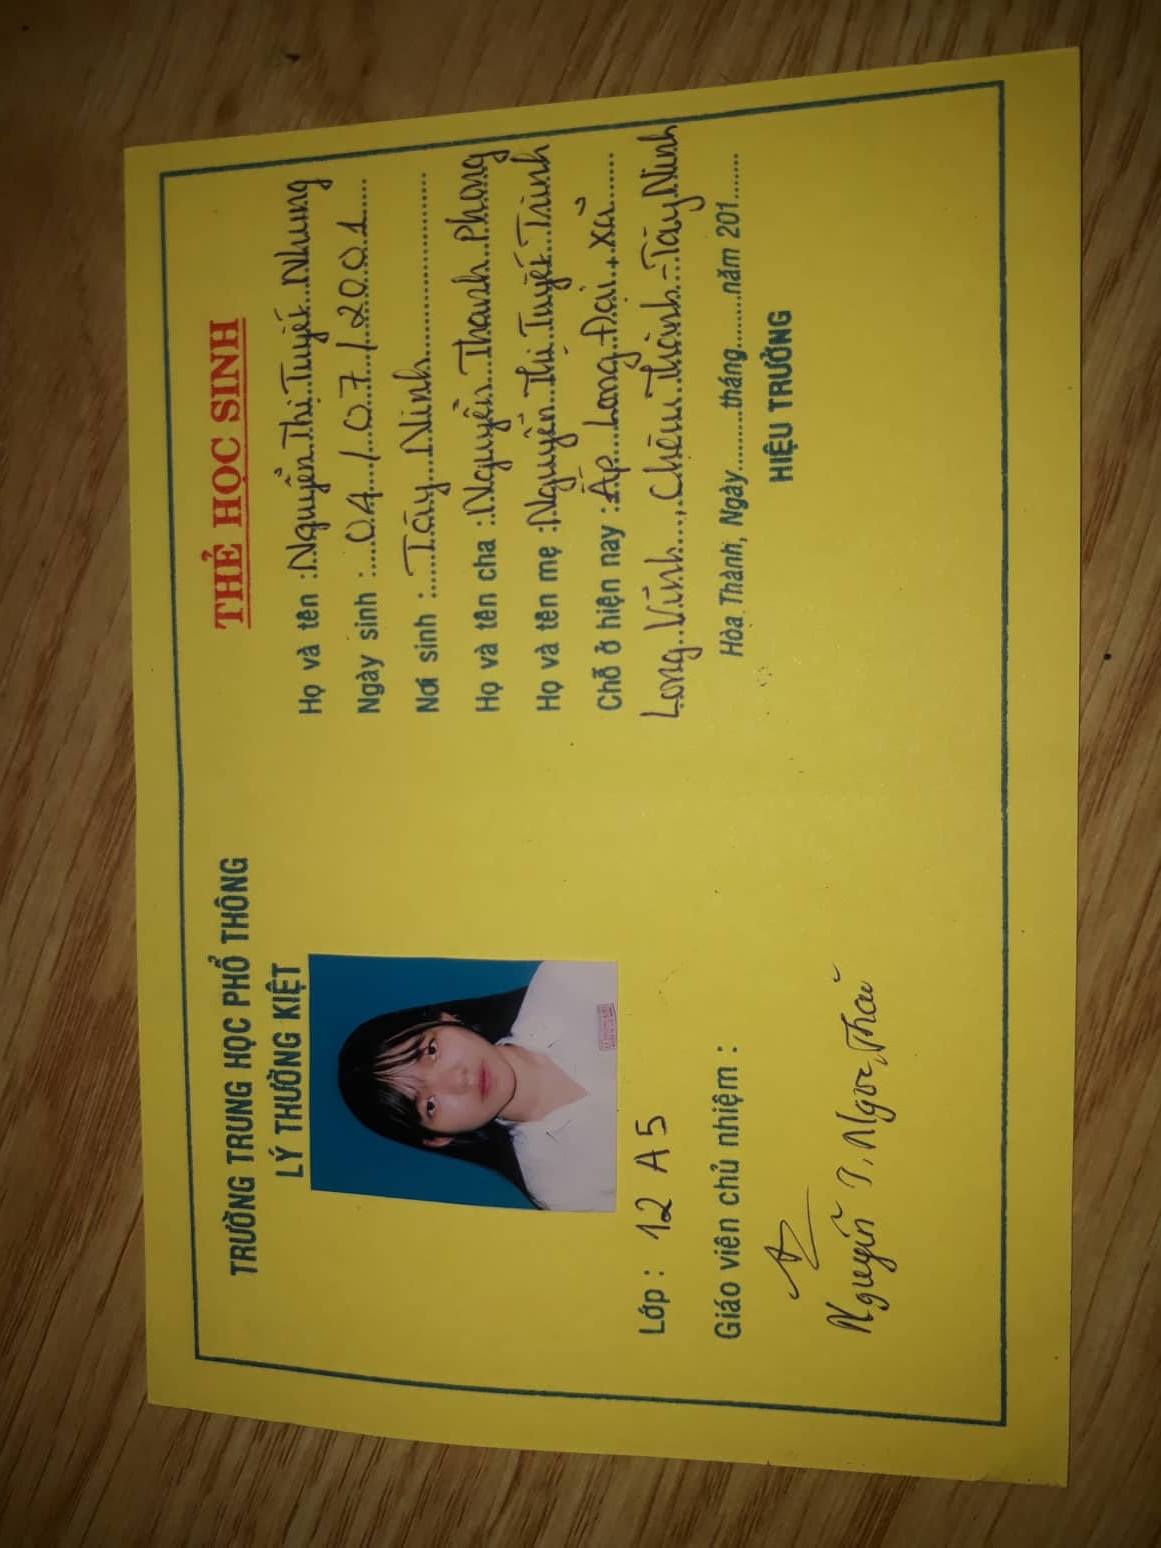 TRƯỜNG TRUNG HỌC PHỔ THÔNG
LÝ THƯỜNG KIỆT
Lớp : 12 A5
Giáo viên chủ nhiệm :
Nguyễn T. Ngọc Thái
THẺ HỌC SINH
Họ và tên : Nguyễn Thị Tuyết Nhung
Ngày sinh : 04 / 07 / 2001
Nơi sinh : Tây Ninh
Họ và tên cha : Nguyễn Thanh Phong
Họ và tên mẹ : Nguyễn Thị Tuyết Trinh
Chỗ ở hiện nay : Ấp Long Đại, xã
Long Vĩnh, Châu Thành - Tây Ninh
Hòa Thành, Ngày........tháng........năm 201......
HIỆU TRƯỞNG